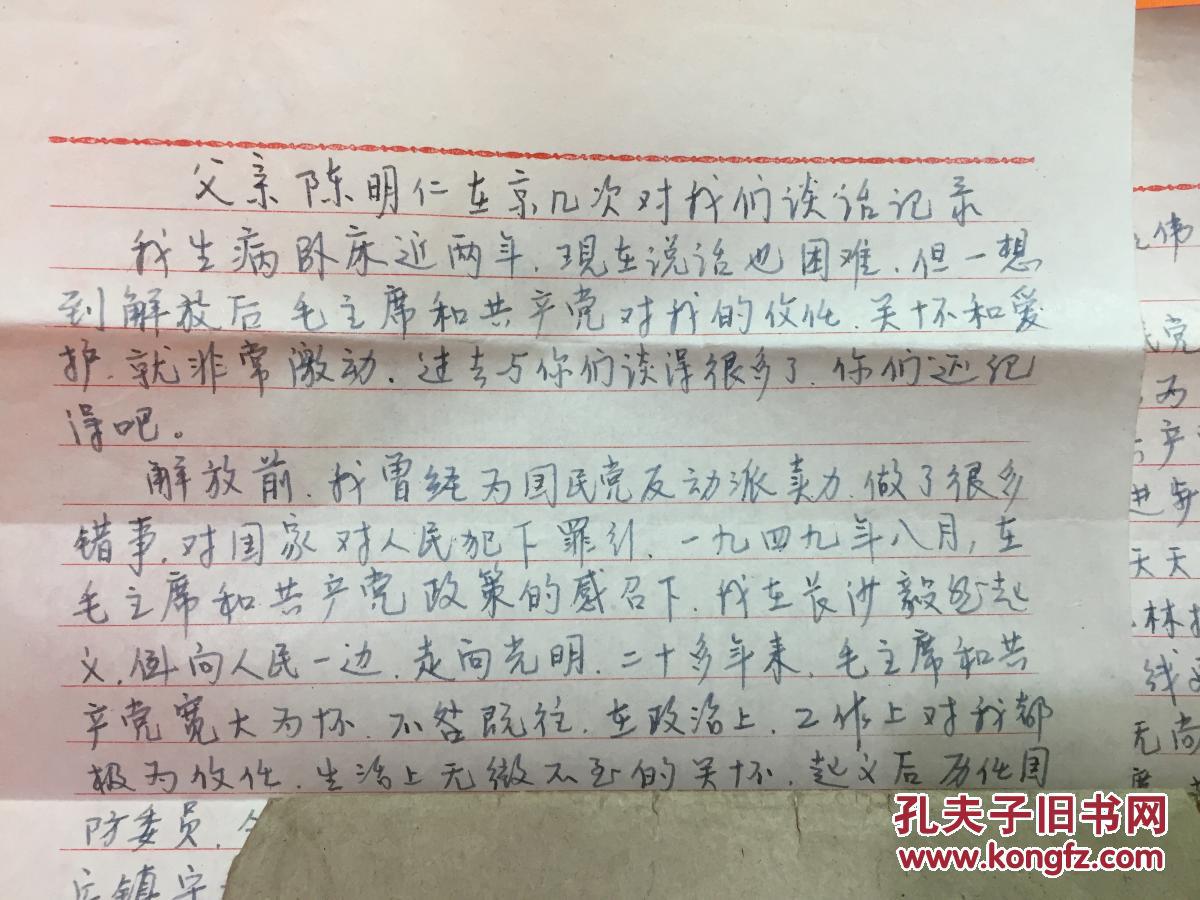 父亲陈明仁在京几次对我们谈话记录
我生病卧床近两年、现在说话也困难、但一想
到解放后毛主席和共产党对我的信任、关怀和爱
护、就非常激动。过去与你们谈得很多了、你们还记
得吧。
解放前、我曾经为国民党反动派卖力、做了很多
错事、对国家对人民犯下罪行、一九四九年八月，在
毛主席和共产党政策的感召下、我在长沙毅然起
义、倒向人民一边、走向光明、二十多年来、毛主席和共
产党宽大为怀、不咎既往、在政治上、工作上对我都
极为信任、生活上无微不至的关怀、起义后历任国
防委员、
兵镇守
伟
党
为
产
进
天天
林
线
无
孔夫子旧书网
www.kongfz.com